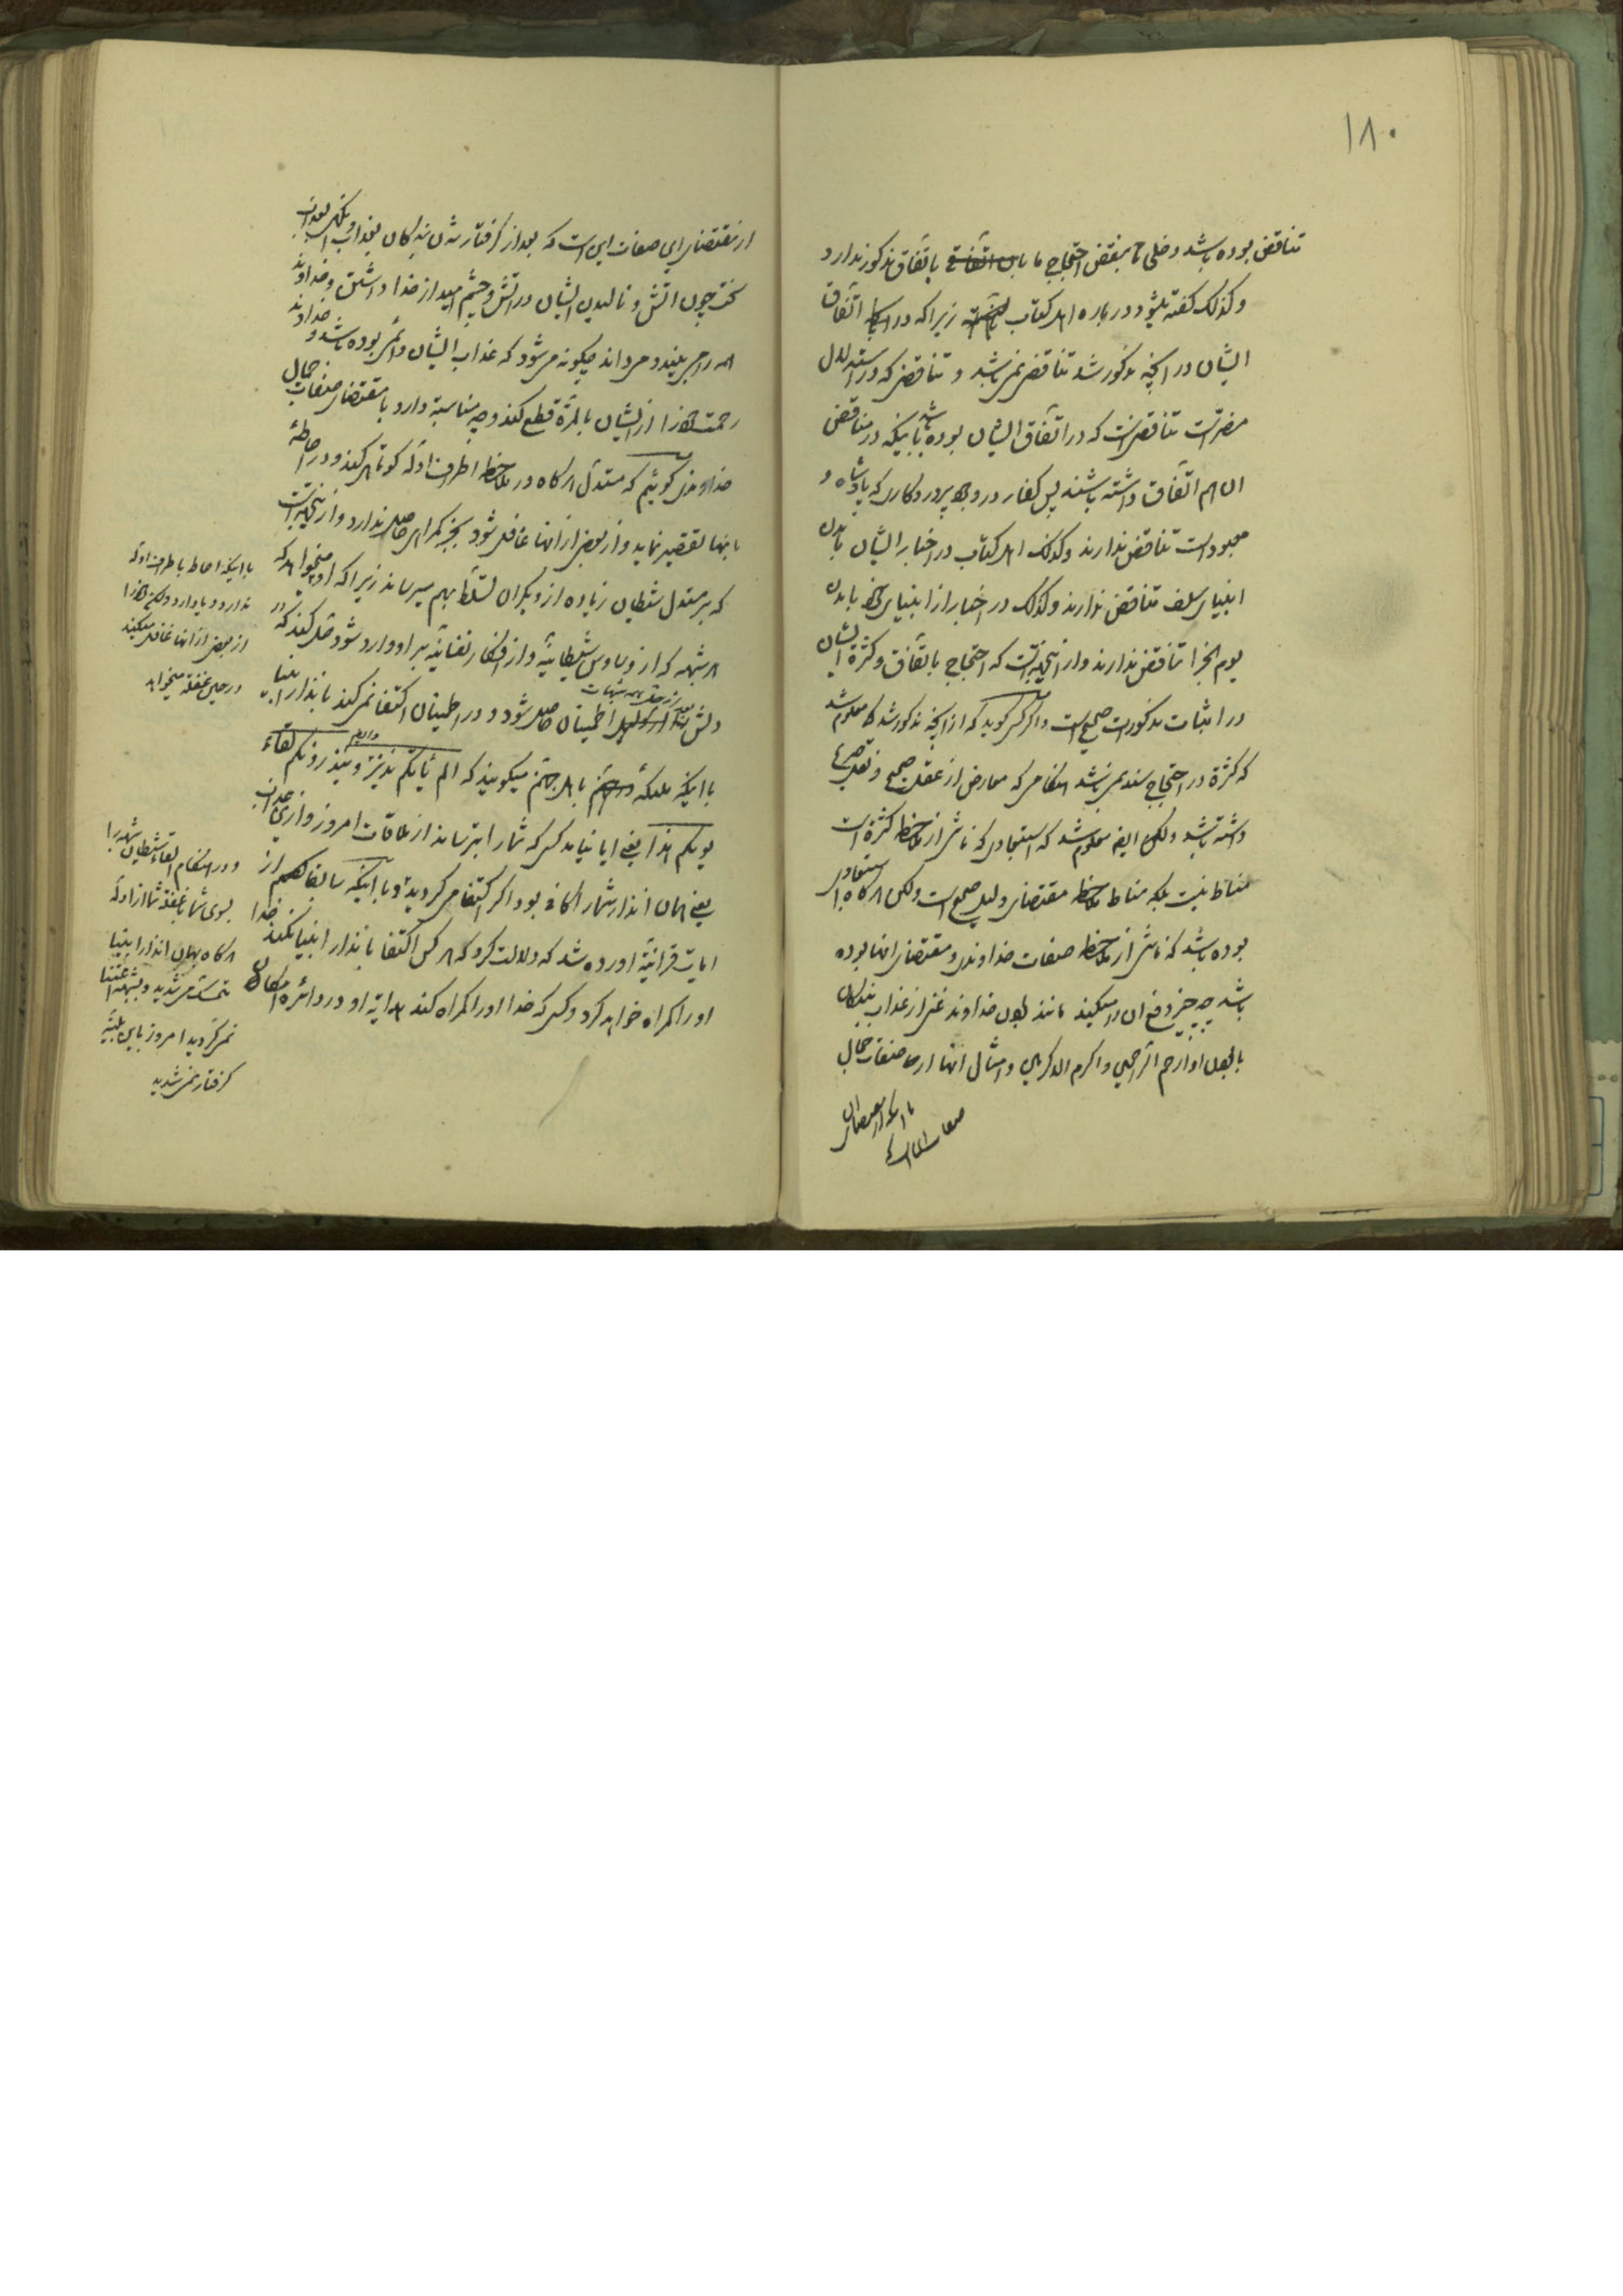 ۱۸۰
تناقض بوده باشد دخلی بنقض احتجاج ما باتفاق مذکور ندارد
و کذلک گفته میشود درباره اهل کتاب زیرا که در اتفاق
ایشان در آنچه مذکور شد تناقض نمی باشد و تناقضی که در استدلال
مضر است تناقضی است که در اتفاق ایشان بوده باشد باینکه در مناقض
ان هم اتفاق داشته باشند پس کفار در وجود پروردگاری که پادشاه و
معبود است تناقض ندارند و کذلک اهل کتاب در اخبار ایشان بآمدن
انبیای سلف تناقض ندارند و کذلک در اخبار از انبیای خود بآمدن
یوم الجزا تناقض ندارند و از اینجهة است که احتجاج باتفاق و کثرة ایشان
در اثبات مذکورات صحیح است و اگر کسی گوید که از آنچه مذکور شد معلوم شد
که کثرة در احتجاج سند نمی باشد هنگامی که معارض از عقل صحیح و نقل صریح
داشته باشد ولکن ایضا معلوم شد که استبعادی که ناشی از ملاحظه کثرة است
مناط نیست بلکه مناط ملاحظه مقتضای دلیل صحیح است ولکن هرگاه استبعادی
بوده باشد که ناشی از ملاحظه صفات خداوندی و مقتضای انها بوده
باشد چه چیز دفع ان را میکند مانند بودن خداوند غنی از عذاب بندگان
با بودن او ارحم الراحمین و اکرم الاکرمین و امثال انها از صفات جمال
از مقتضای این صفات این است که بعد از گرفتار شدن بندگان بعذاب
سخت چون اتش و نالیدن ایشان در اتش و چشم امید از خدا داشتن و خداوند
همه را می بیند و می داند چگونه می شود که عذاب ایشان دائمی بوده باشد و خداوند
رحمت خود را از ایشان بالمرة قطع کند و چه مناسبة دارد با مقتضای صفات جمال
خداوندی گوئیم که مستدل هرگاه در ملاحظه اطراف ادله کوتاهی کند و در احاطهٔ
بانها تقصیر نماید و از بعضی از انها غافل شود بجز گمراهی حاصلی ندارد و از اینجهة است
که بر مستدل شیطان زیاده از دیگران تسلط بهم میرساند زیرا که او میخواهد که
هر شبهه که از وساوس شیطانیه و از افکار نفسانیه بر او وارد شود حل کند که در
دلش اطمینان حاصل شود و در اطمینان اکتفا نمی کند بانذار انبیا
با اینکه ملائکه باهل جهنم میگویند که الم یأتکم نذیر و ینذرونکم لقاء
یومکم هذا یعنی ایا نیامد کسی که شما را بترساند از ملاقات امروز
یعنی همان انذار شما را کافی بود اگر اکتفا می کردید و با اینکه سابقا هم از
ایات قرانیة اورده شد که دلالت کرد که هر کس اکتفا بانذار انبیا نکند خدا
او را گمراه خواهد کرد و کسی که خدا او را گمراه کند هدایة او در دائره امکان
با اینکه احاطه باطراف ادله
ندارد و یا دارد ولکن خود را
از بعضی از انها غافل میکند
در حین غفلة میخواهد
و در هنگام القاء شیطان شبهه را
بسوی شما با غفلة شما از ادله
هرگاه بهمان انذار انبیا
متمسک می شدید و بشبهه اعتنا
نمی کردید امروز باین بلیّه
گرفتار نمی شدید